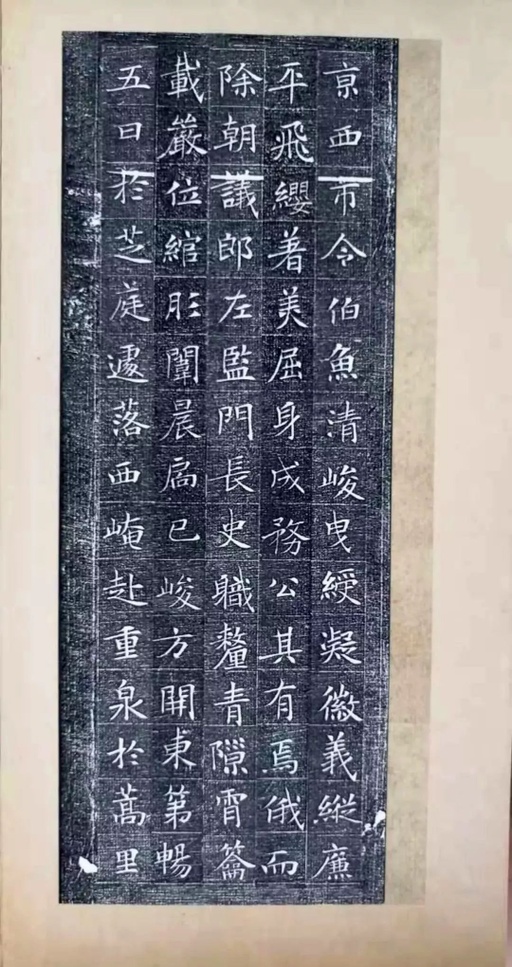 京西市令伯魚清峻曳綬凝徽義縱廉
平飛纓著美屈身成務公其有焉俄而
除朝議郎左監門長史職氂青隙霄籥
載嚴位綰彤闈晨扃已峻方開東第暢
五日於芝庭遽落西崦赴重泉於蒿里